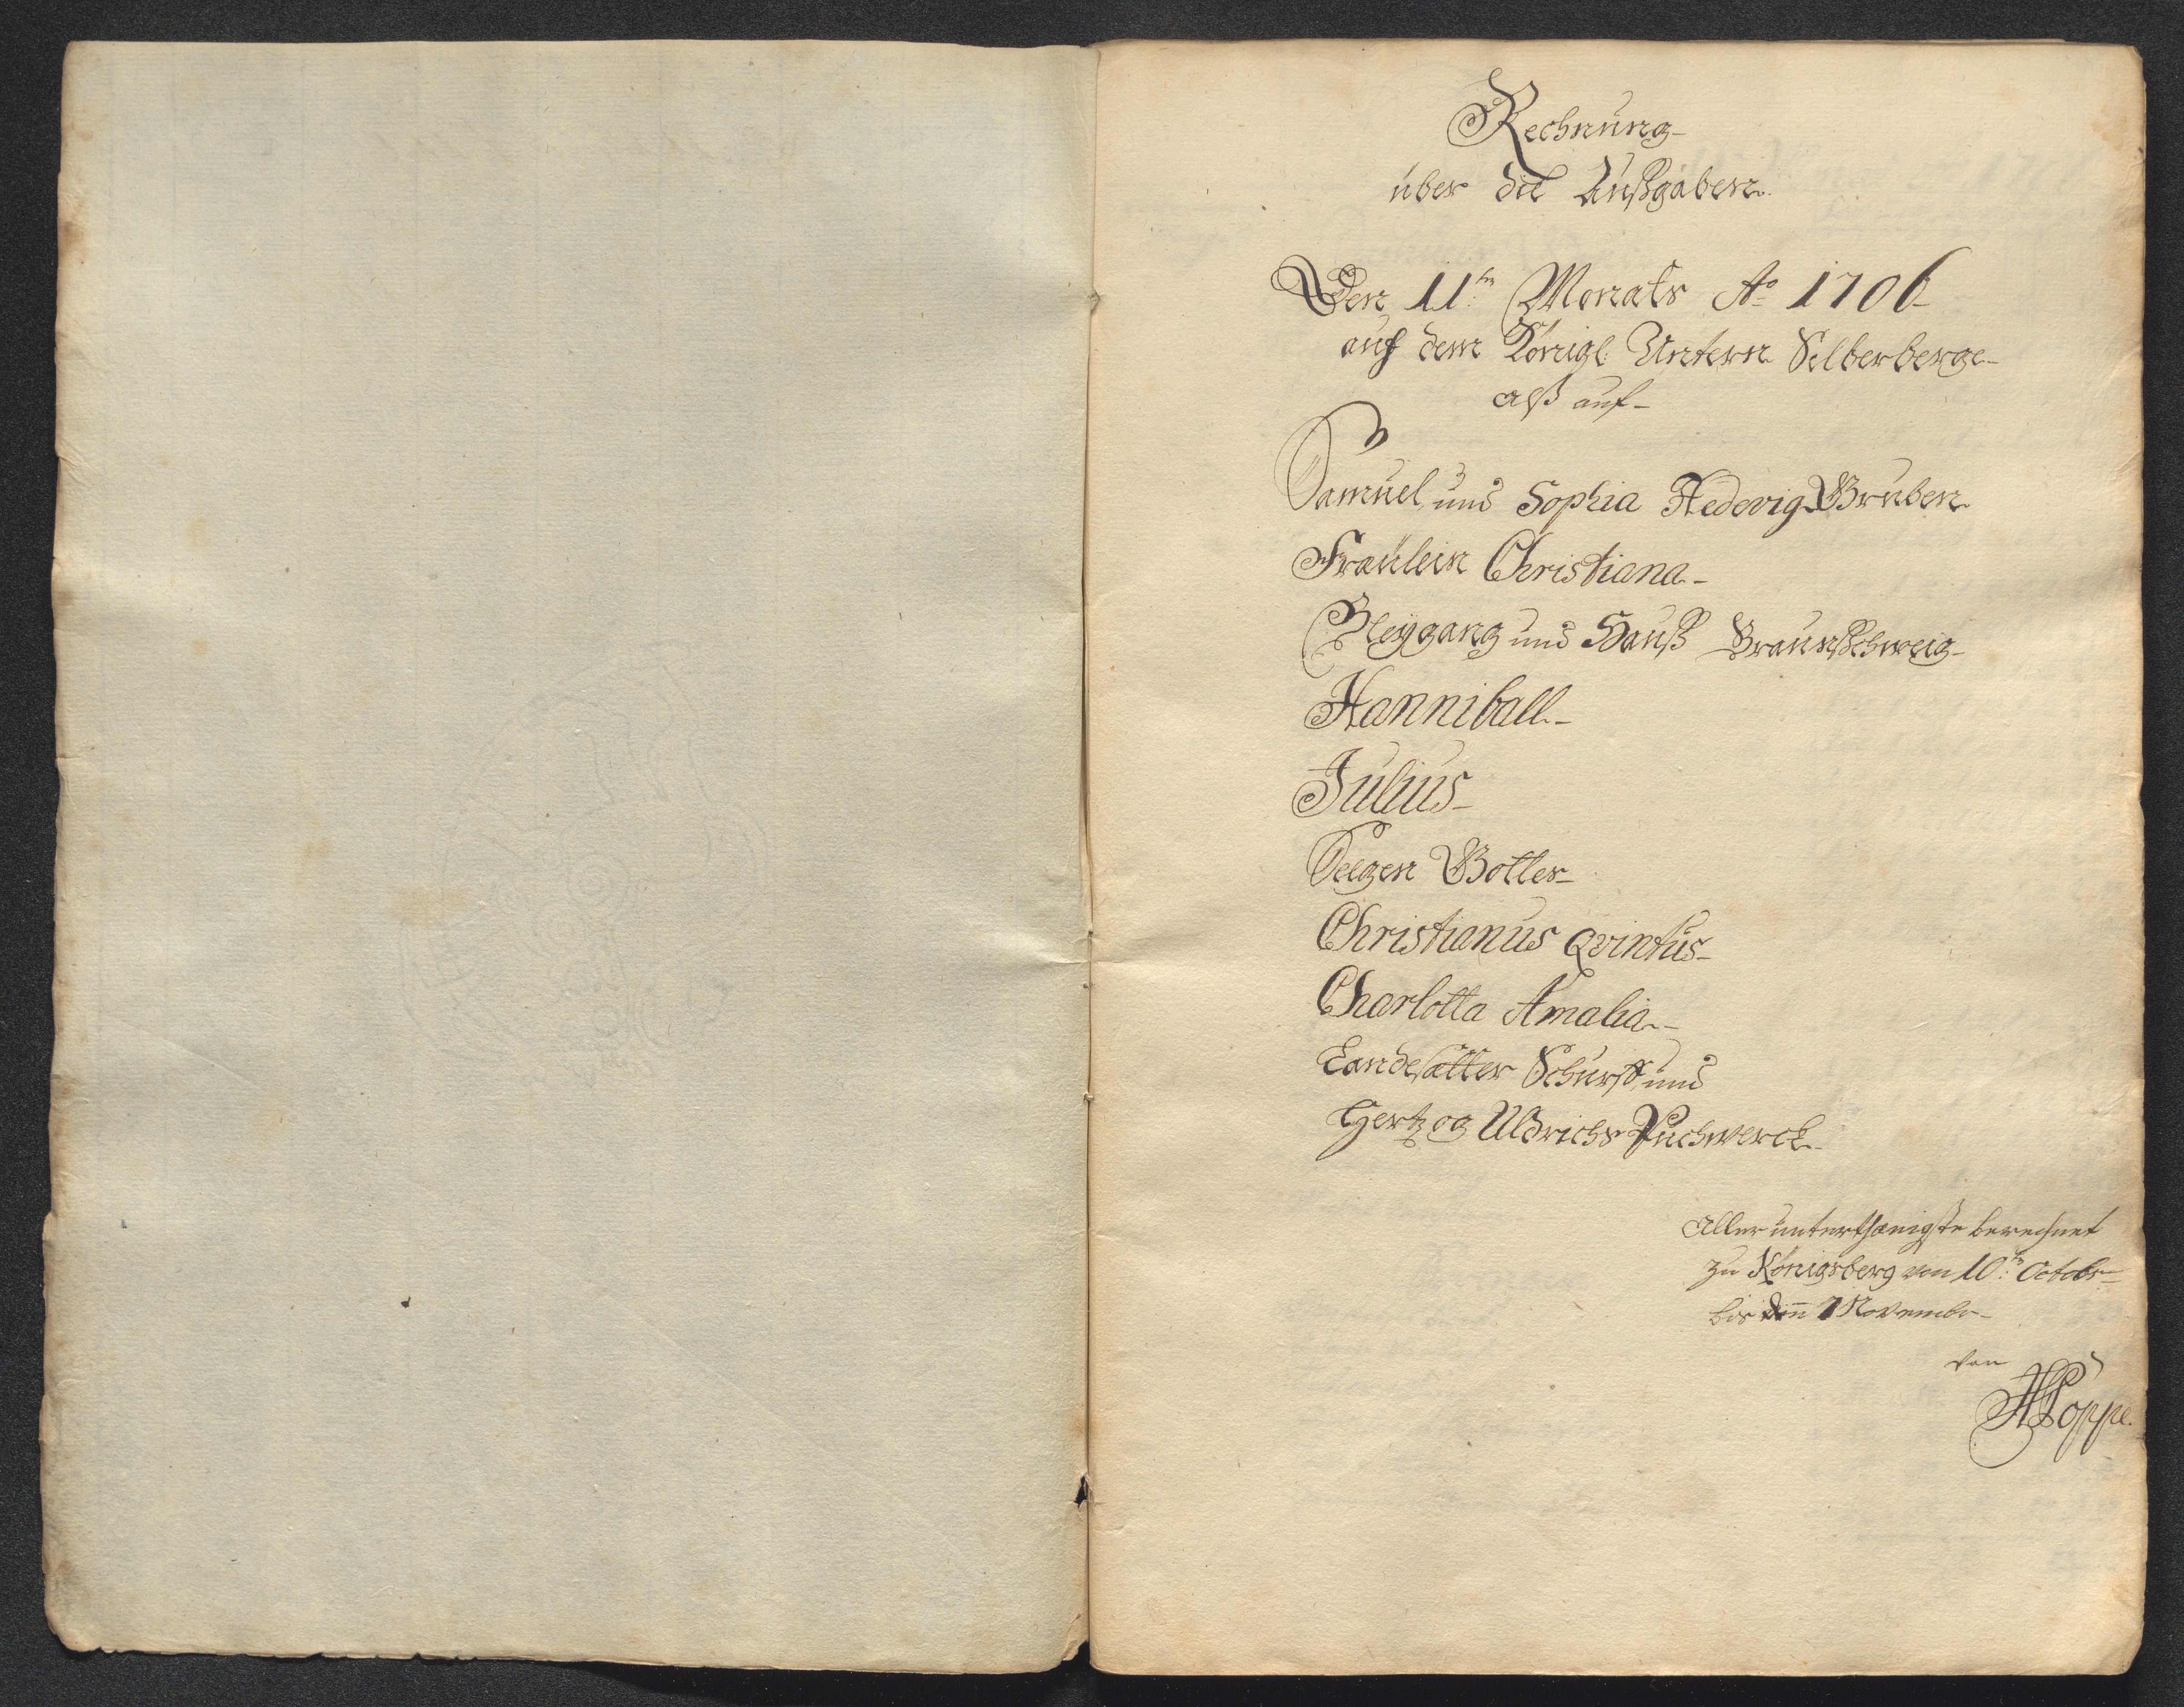 Rechnung
über die Außgaben
Den 11ᵗⁿ Monats Aº 1706
auf dem Königl: Untern Silberberge
alß auf
Samuel und Sophia Hedevig Gruben
Fraülein Christiana
Bleygang und Hauß Braunschweig
Hanniball
Julius
Seegen Gottes
Christianus Qvintus
Charlotta Amalia
Schurff und
Hertzog Uldrichs Puchwerck
Aller unterthänigste berechnet
zu Königsberg von 10ᵗⁿ Octobr
bis den 7 Novembr
von